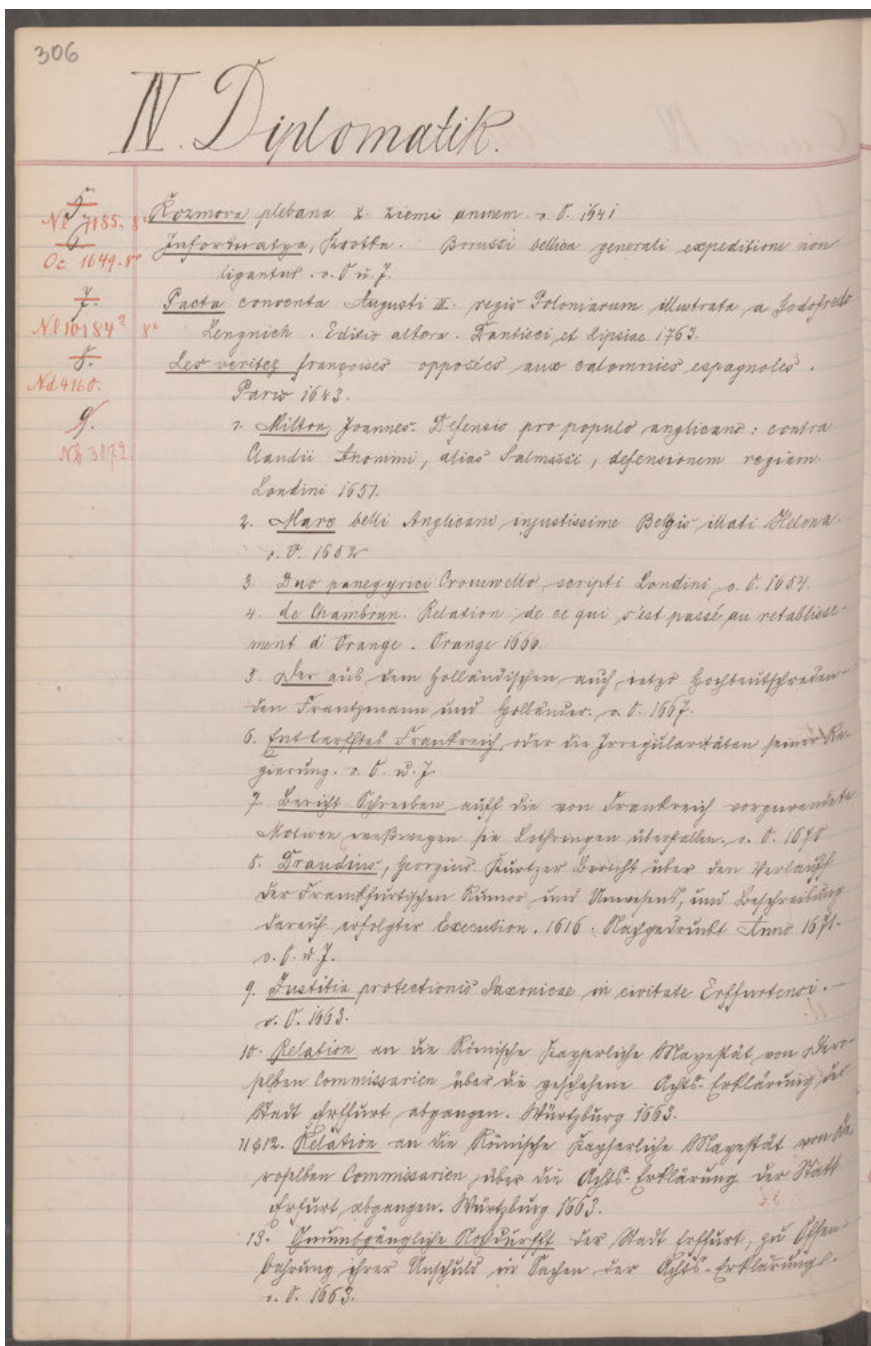 306
IV. Diplomatik.
5.
Nl 7185. 8°
Rozmova plebana z ziemianinem. o. O. 1641
6.
Oc 1649. 8°
Informatya, Krotka. Borussi bellica generali expeditione non
ligantur. o. O u. J.
7.
Nl 10184² 8°
Pacta conventa Augusti III. regis Poloniarum illustrata a Godofredo
Lengnich. Editio altera. Dantisci et Lipsiae 1763.
8.
Nd 4160.
Les veritez françoises opposées aux calomnies espagnoles.
Paris 1643.
9.
1. Milton, Joannes. Defensio pro populo anglicano: contra
Claudii Anonimi, alias Salmasii, defensionem regiam
Londini 1651.
2. Mars belli Anglicani injustissime Belgis illati Helena.
o. O. 1652
3. Duo panegyrici Cromwello scripti Londini, o. O. 1654.
4. de Chambrun. Relation de ce qui s'est passé au retablisse-
ment d'Orange. Orange 1666.
5. Der aus dem Holländischen auch ietzo Hochteutschreden-
den Frantzmann und Holländer. o. O. 1667.
6. Entlarfftes Franckreich, oder die Irregularitäten seiner Re-
gierung. o. O. u. J.
7. Bericht Schreiben auff die von Franckreich vorgewendete
Motiven, weßwegen sie Lothringen überfallen. o. O. 1670
8. Draudius, Georgius. Kurtzer Bericht über den Verlauff
der Franckfurtischen Rumor und Unwesens, und Beschreibung
darauf erfolgter Execution. 1616. Nachgedruckt Anno 1671.
o. O. u. J.
9. Justitia protectionis Saxonicae in civitate Erffurtensi.
o. O. 1663.
10. Relation an die Römische Kayserliche Mayestät von Dero-
selben Commissarien über die geschehene Achts-Erklärung der
Stadt Erffurt abgangen. Würtzburg 1663.
11 & 12. Relation an die Römische Kayserliche Mayestät von De-
roselben Commissarien über die Achts-Erklärung der Statt
Erfurt abgangen. Würtzburg 1663.
13. Unumbgängliche Nothdurfft der Stadt Erffurt, zu Offen-
bahrung ihrer Unschuld in Sachen der Achts-Erklärung.
o. O. 1663.